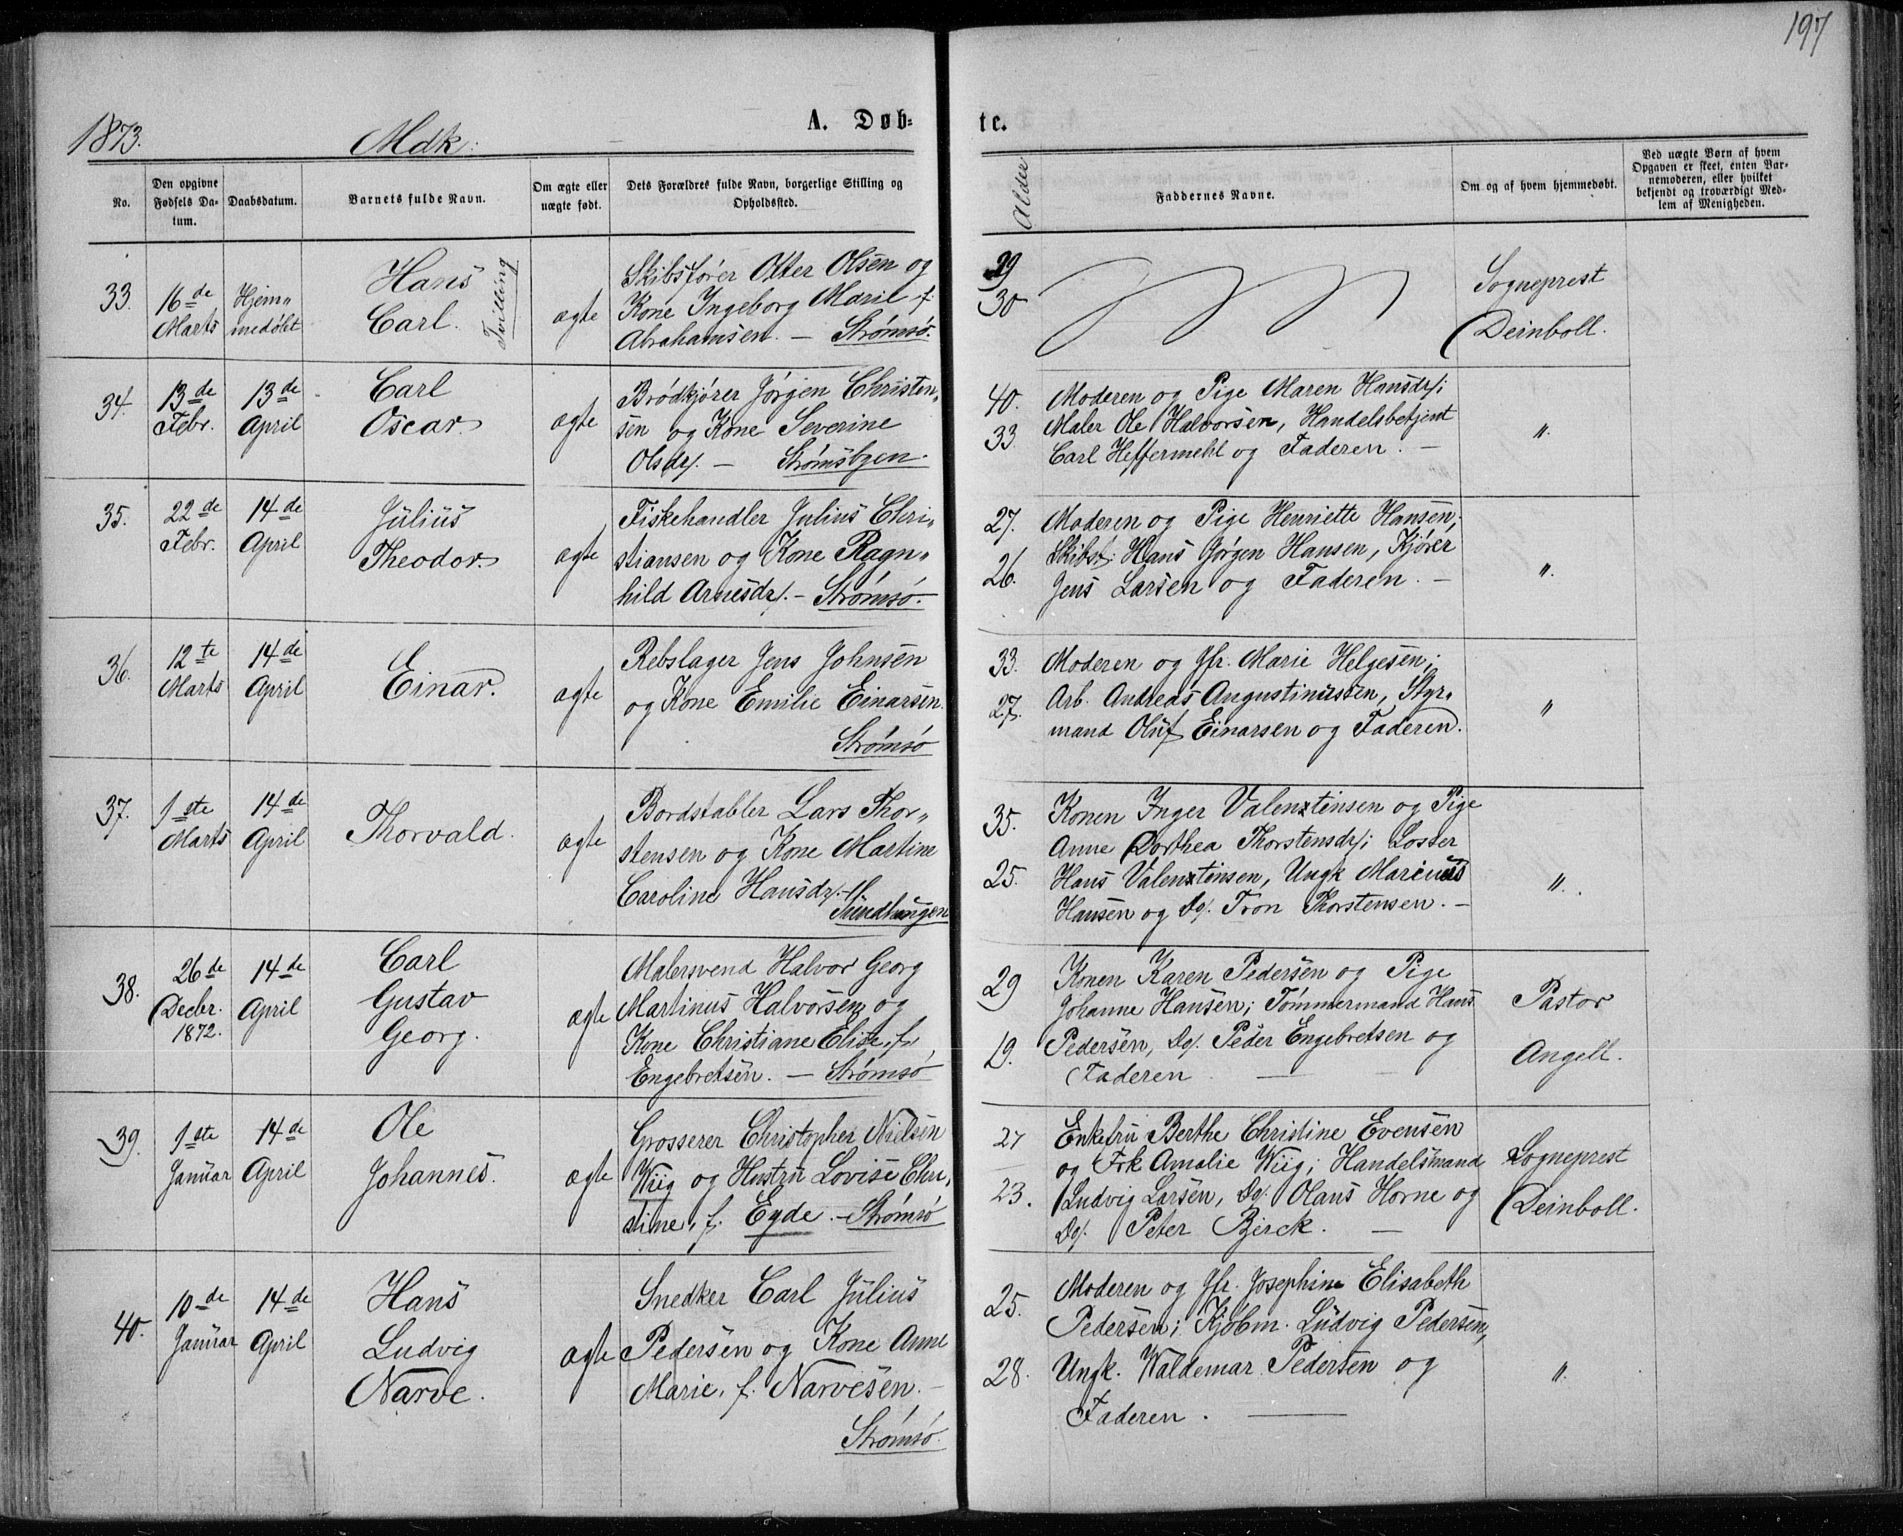 197
1873.
Mdk:
A. Døb-
te.
No.
Den opgivne
Fødsels Da-
tum.
Daabsdatum.
Barnets fulde Navn.
Om ægte eller
uægte født.
Dets Forældres fulde Navn, borgerlige Stilling og
Opholdssted.
Alder
Faddernes Navne.
Om og af hvem hjemmedøbt.
Ved uægte Børn af hvem
Opgaven er skeet, enten Bar-
nemoderen, eller hvilket
bekjendt og troværdigt Med-
lem af Menigheden.
33.
16de
Marts
Hjem„
medøbt
Hans
Carl.
Tvilling
ægte
Skibsfører Otter Olsen og
Kone Ingeborg Marie f.
Abrahamsen. — Strømsø.
29
30
Sogneprest
Deinboll.
34.
13de
Febr.
13de
April
Carl
Oscar.
ægte
Brødkjører Jørgen Christen„
sen og Kone Severine
Olsdr. — Strømsbyen.
40.
33.
Moderen og Pige Maren Hansdr;
Maler Ole Halvorsen, Handelsbetjent
Carl Heffermehl og Faderen. —
".
35.
22de
Febr.
14de
April
Julius
Theodor.
ægte
Fiskehandler Julius Chri„
stiansen og Kone Ragn„
hild Arnesdr. — Strømsø.
27.
26.
Moderen og Pige Henriette Hansen;
Skibst: Hans Jørgen Hansen, Kjører
Jens Larsen og Faderen. —
".
36.
12te
Marts
14de
April
Einar.
ægte
Rebslager Jens Johnsen
og Kone Emilie Einarsen.
Strømsø
33.
27.
Moderen og Jfr. Marie Helgesen;
Arb. Andreas Augustinussen, Styr„
mand Oluf Einarsen og Faderen.
"
37.
1ste
Marts
14de
April
Thorvald.
ægte
Bordstabler Lars Thor„
stensen og Kone Martine
Caroline Hansdr. —
Tundhaugen
35.
25.
Konen Inger Valentinsen og Pige
Anne Dorthea Thorstensdr; Losser
Hans Valentinsen, Ungk Marinus
Hansen og Do. Tron Thorstensen. —
".
38.
26de
Decbr.
1872.
14de
April
Carl
Gustav
Georg.
ægte
Malersvend Halvor Georg
Martinus Halvorsen og
Kone Christiane Elise, f.
Engebretsen. — Strømsø
29
19.
Konen Karen Pedersen og Pige
Johanne Hansen; Tømmermand Hans
Pedersen, Do. Peder Engebretsen og
Faderen —
Pastor
Angell.
39.
1ste
Januar
14de
April
Ole
Johannes.
ægte
Grosserer Christopher Nielsen
Wiig og Hustru Lovise Chri„
stine, f. Eyde. — Strømsø
27
23.
Enkefru Berthe Christine Evensen
og Frk Amalie Wiig; Handelsmand
Ludvig Larsen, Do. Olaus Horne og
Do. Peter Bjerck. —
Sogneprest
Deinboll.
40.
10de
Januar
14de
April
Hans
Ludvig
Narve.
ægte
Snedker Carl Julius
Pedersen og Kone Anne
Marie, f. Narvesen. —
Strømsø.
25.
28.
Moderen og Jfr. Josephine Elisabeth
Pedersen; Kjøbm. Ludvig Pedersen,
Ungk. Waldemar Pedersen og
Faderen. —
".